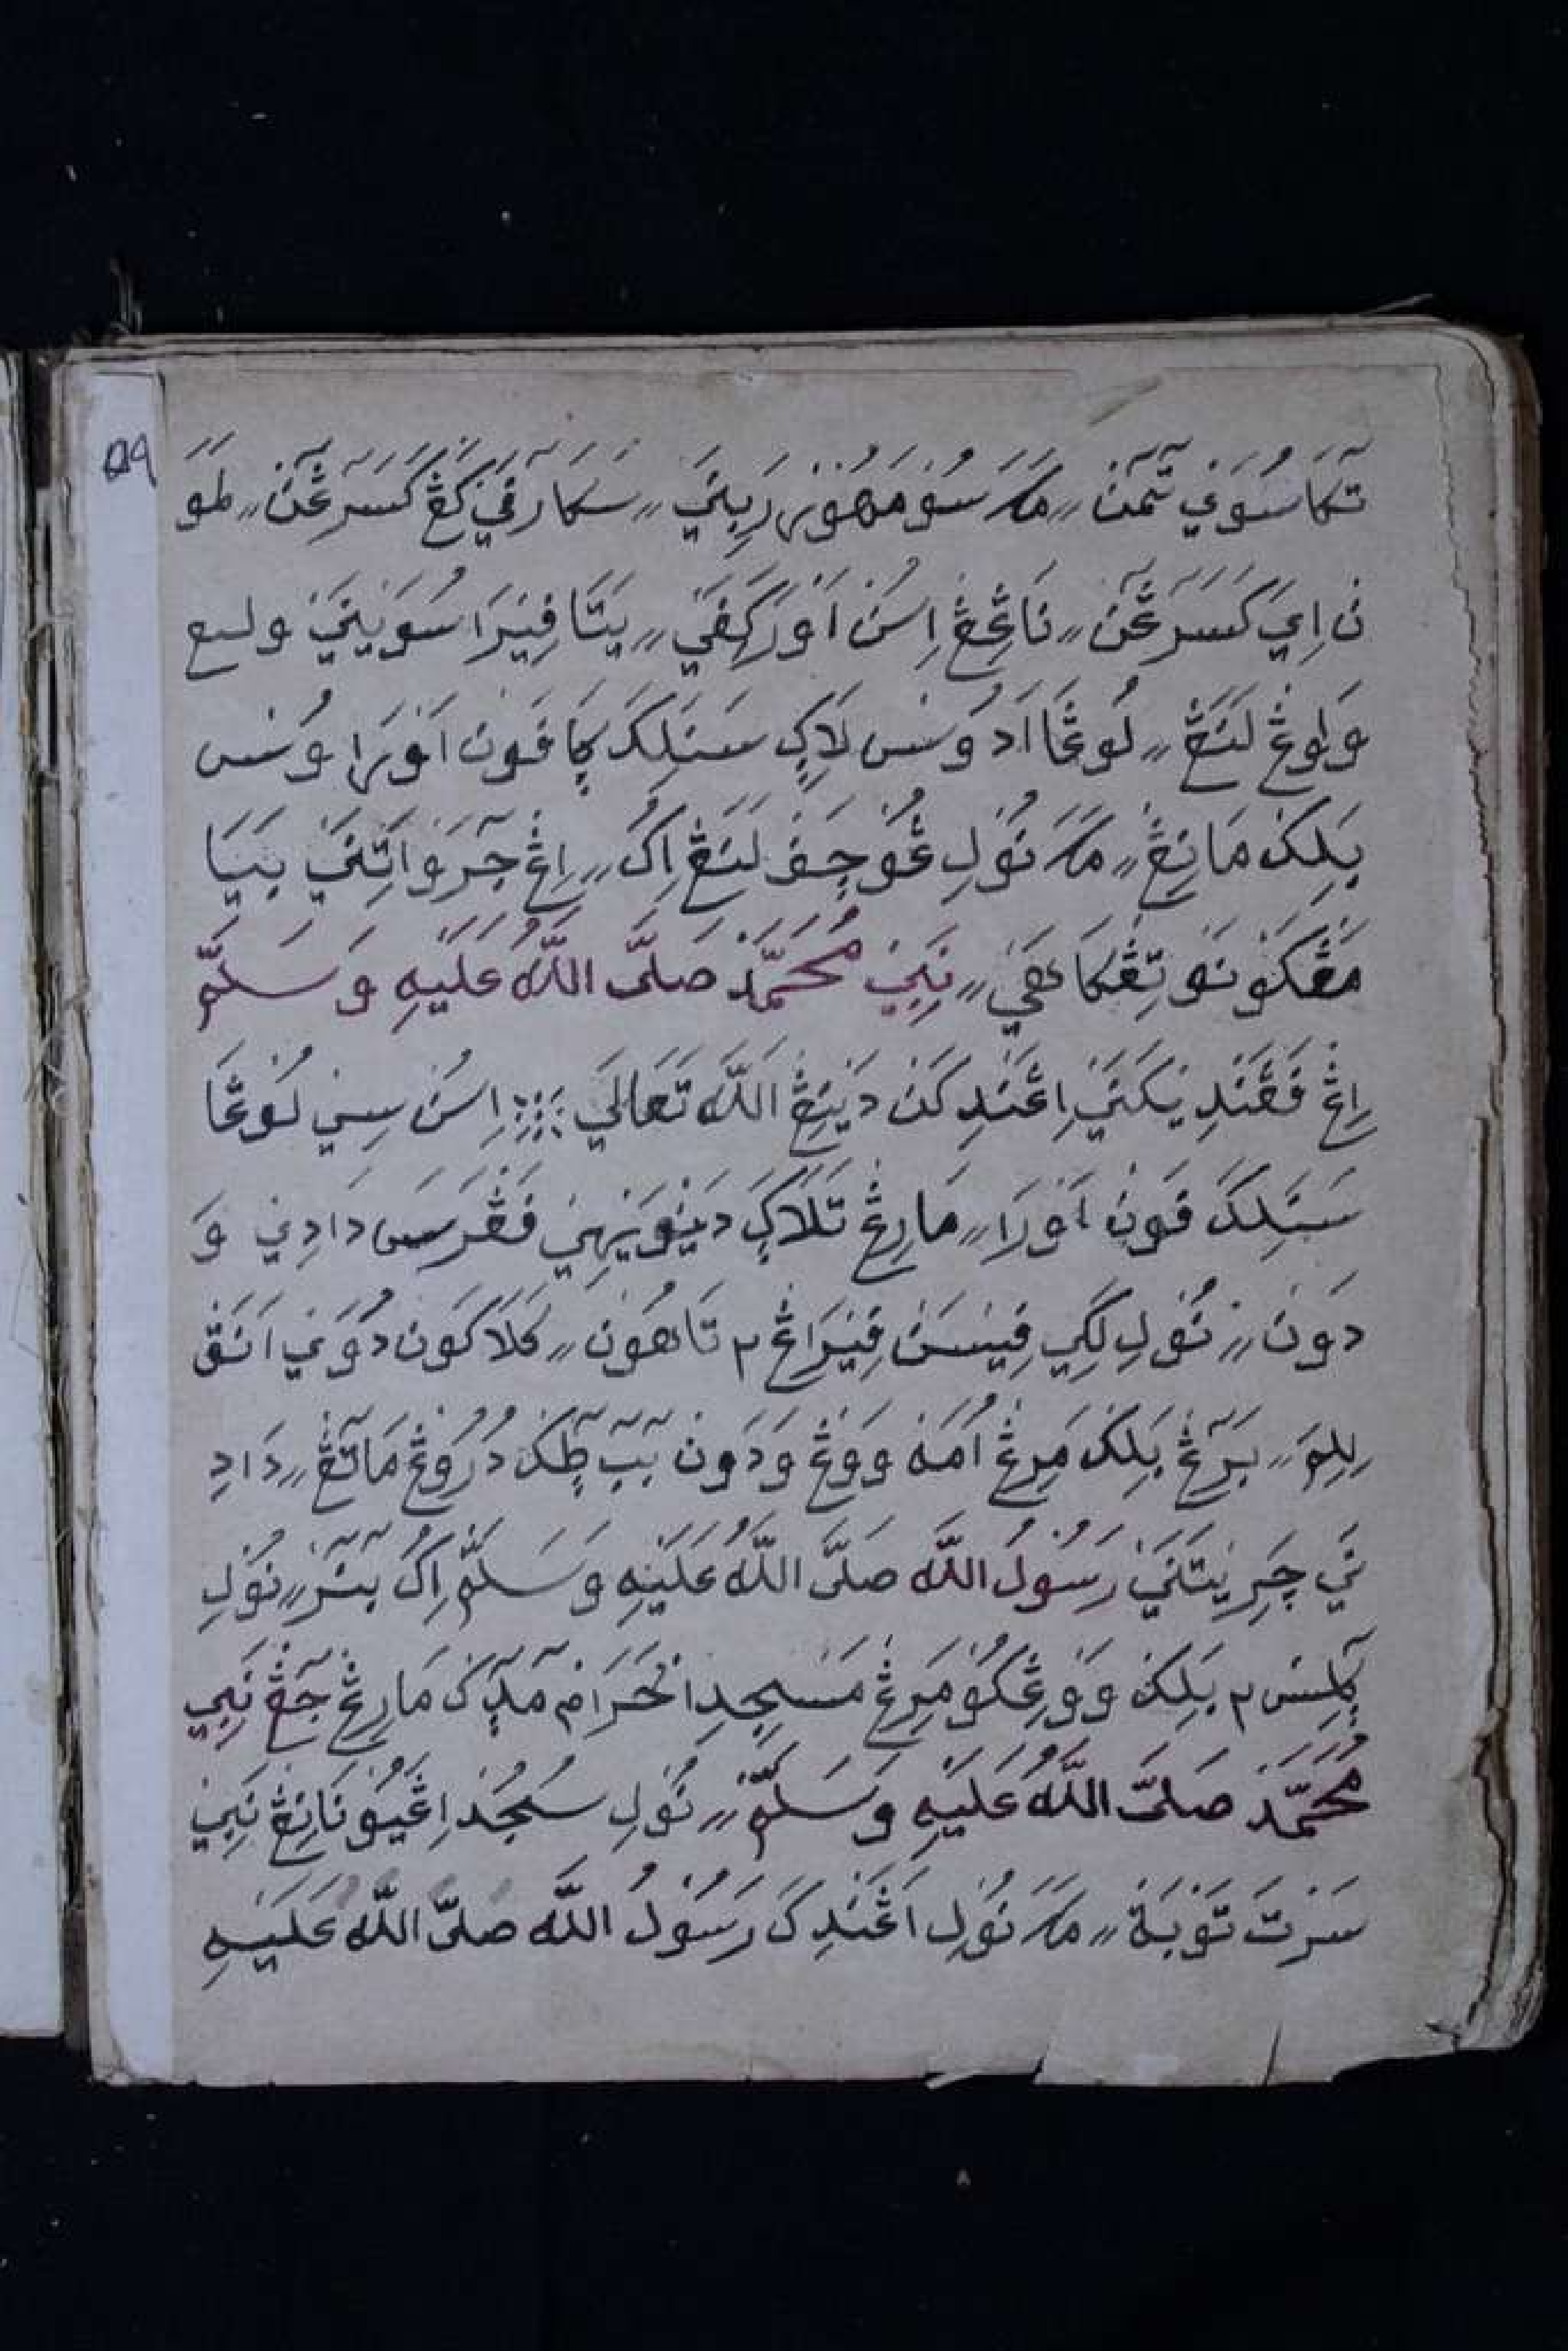 ٥٩
تٓكَا سُوَنٓي تٓمَنٓ ؍؍ مَكَ سُومَهُونَ رَيْنَيْ ؍؍ سَكَارٓفَيْ كَڠْ كَسَرٓڠَنْ ؍؍ لَمَوْ
نْ اِيَ كَسَرٓڠَنْ ؍؍ نَاڠِڠْ اِسُنْ اَوْرَ كَهَفَيْ ؍؍ يَتَا فِيْرَا سُوَيْنَيْ
وَلُوڠْ لَنَڠْ ؍؍ لُوڠَا اَدُوْسْ لَاكِ سَتَلَكَ فَوْنْ اَوْرَا وُسْ
بَلِكْ مَانِڠْ ؍؍ مَكَ نُوْلِ ڠُوْجَفْ لَنَڠْ اِكُ ؍؍ اِڠْ جٓرَوْ اَتِنَيْ بَيَا
مَڠْكَوْنَوْ تِڠْكَاهَيْ ؍؍ نَبِيْ مُحَمَّدْ صَلَّى اللّٰهُ عَلَيْهِ وَسَلَّمْ
اِڠْ فَڠَنْدِيْكَنَيْ اِڠَنْدِكَنْ دَيْنِڠْ اللّٰهْ تَعَالَى ؞ اِسُنْ سِيْ لُوْڠَا
سَتَلَكَ فَوْنْ اَوْرَا ؍؍ مَارِڠْ تَلَاكَ دَيْنَوَيْهِيْ فَڠْرَسَ دَادِيْ وَ
دَوْنْ ؍؍ نُوْلِ لَكِيْ فِيْسَنْ فِيْرَاڠْ٢ تَاهُونْ ؍؍ كَلَاكَوْنْ دُوَيْ اَنَقْ
لِلِمَ ؍؍ بَرَڠْ بَلِكْ مَرِڠْ اُمَهْ وَوْڠْ وَدَوْنْ دُرُوْڠْ مَاتٓڠْ ؍؍ دَادِ
نَيْ جَرِيْتَنَيْ رَسُوْلُ اللّٰهْ صَلَّى اللّٰهُ عَلَيْهِ وَسَلَّمْ اِكُ بٓنٓرْ ؍؍ نُوْلِ
بَلِكْ وَوْڠِكُوْ مَرِڠْ مَسْجِدِ الْحَرَامْ مَدٓكْ مَارِڠْ جٓڠْ نَبِي
مُحَمَّدْ صَلَّى اللّٰهُ عَلَيْهِ وَسَلَّمْ ؍؍ نُوْلِ سُجُدْ اِڠَيُوْنَانِڠْ نَبِيْ
سَرْتَ تَوْبَةْ ؍؍ مَكَ نُوْلِ اَڠَنْدِكَ رَسُوْلُ اللّٰهْ صَلَّى اللّٰهُ عَلَيْهِ